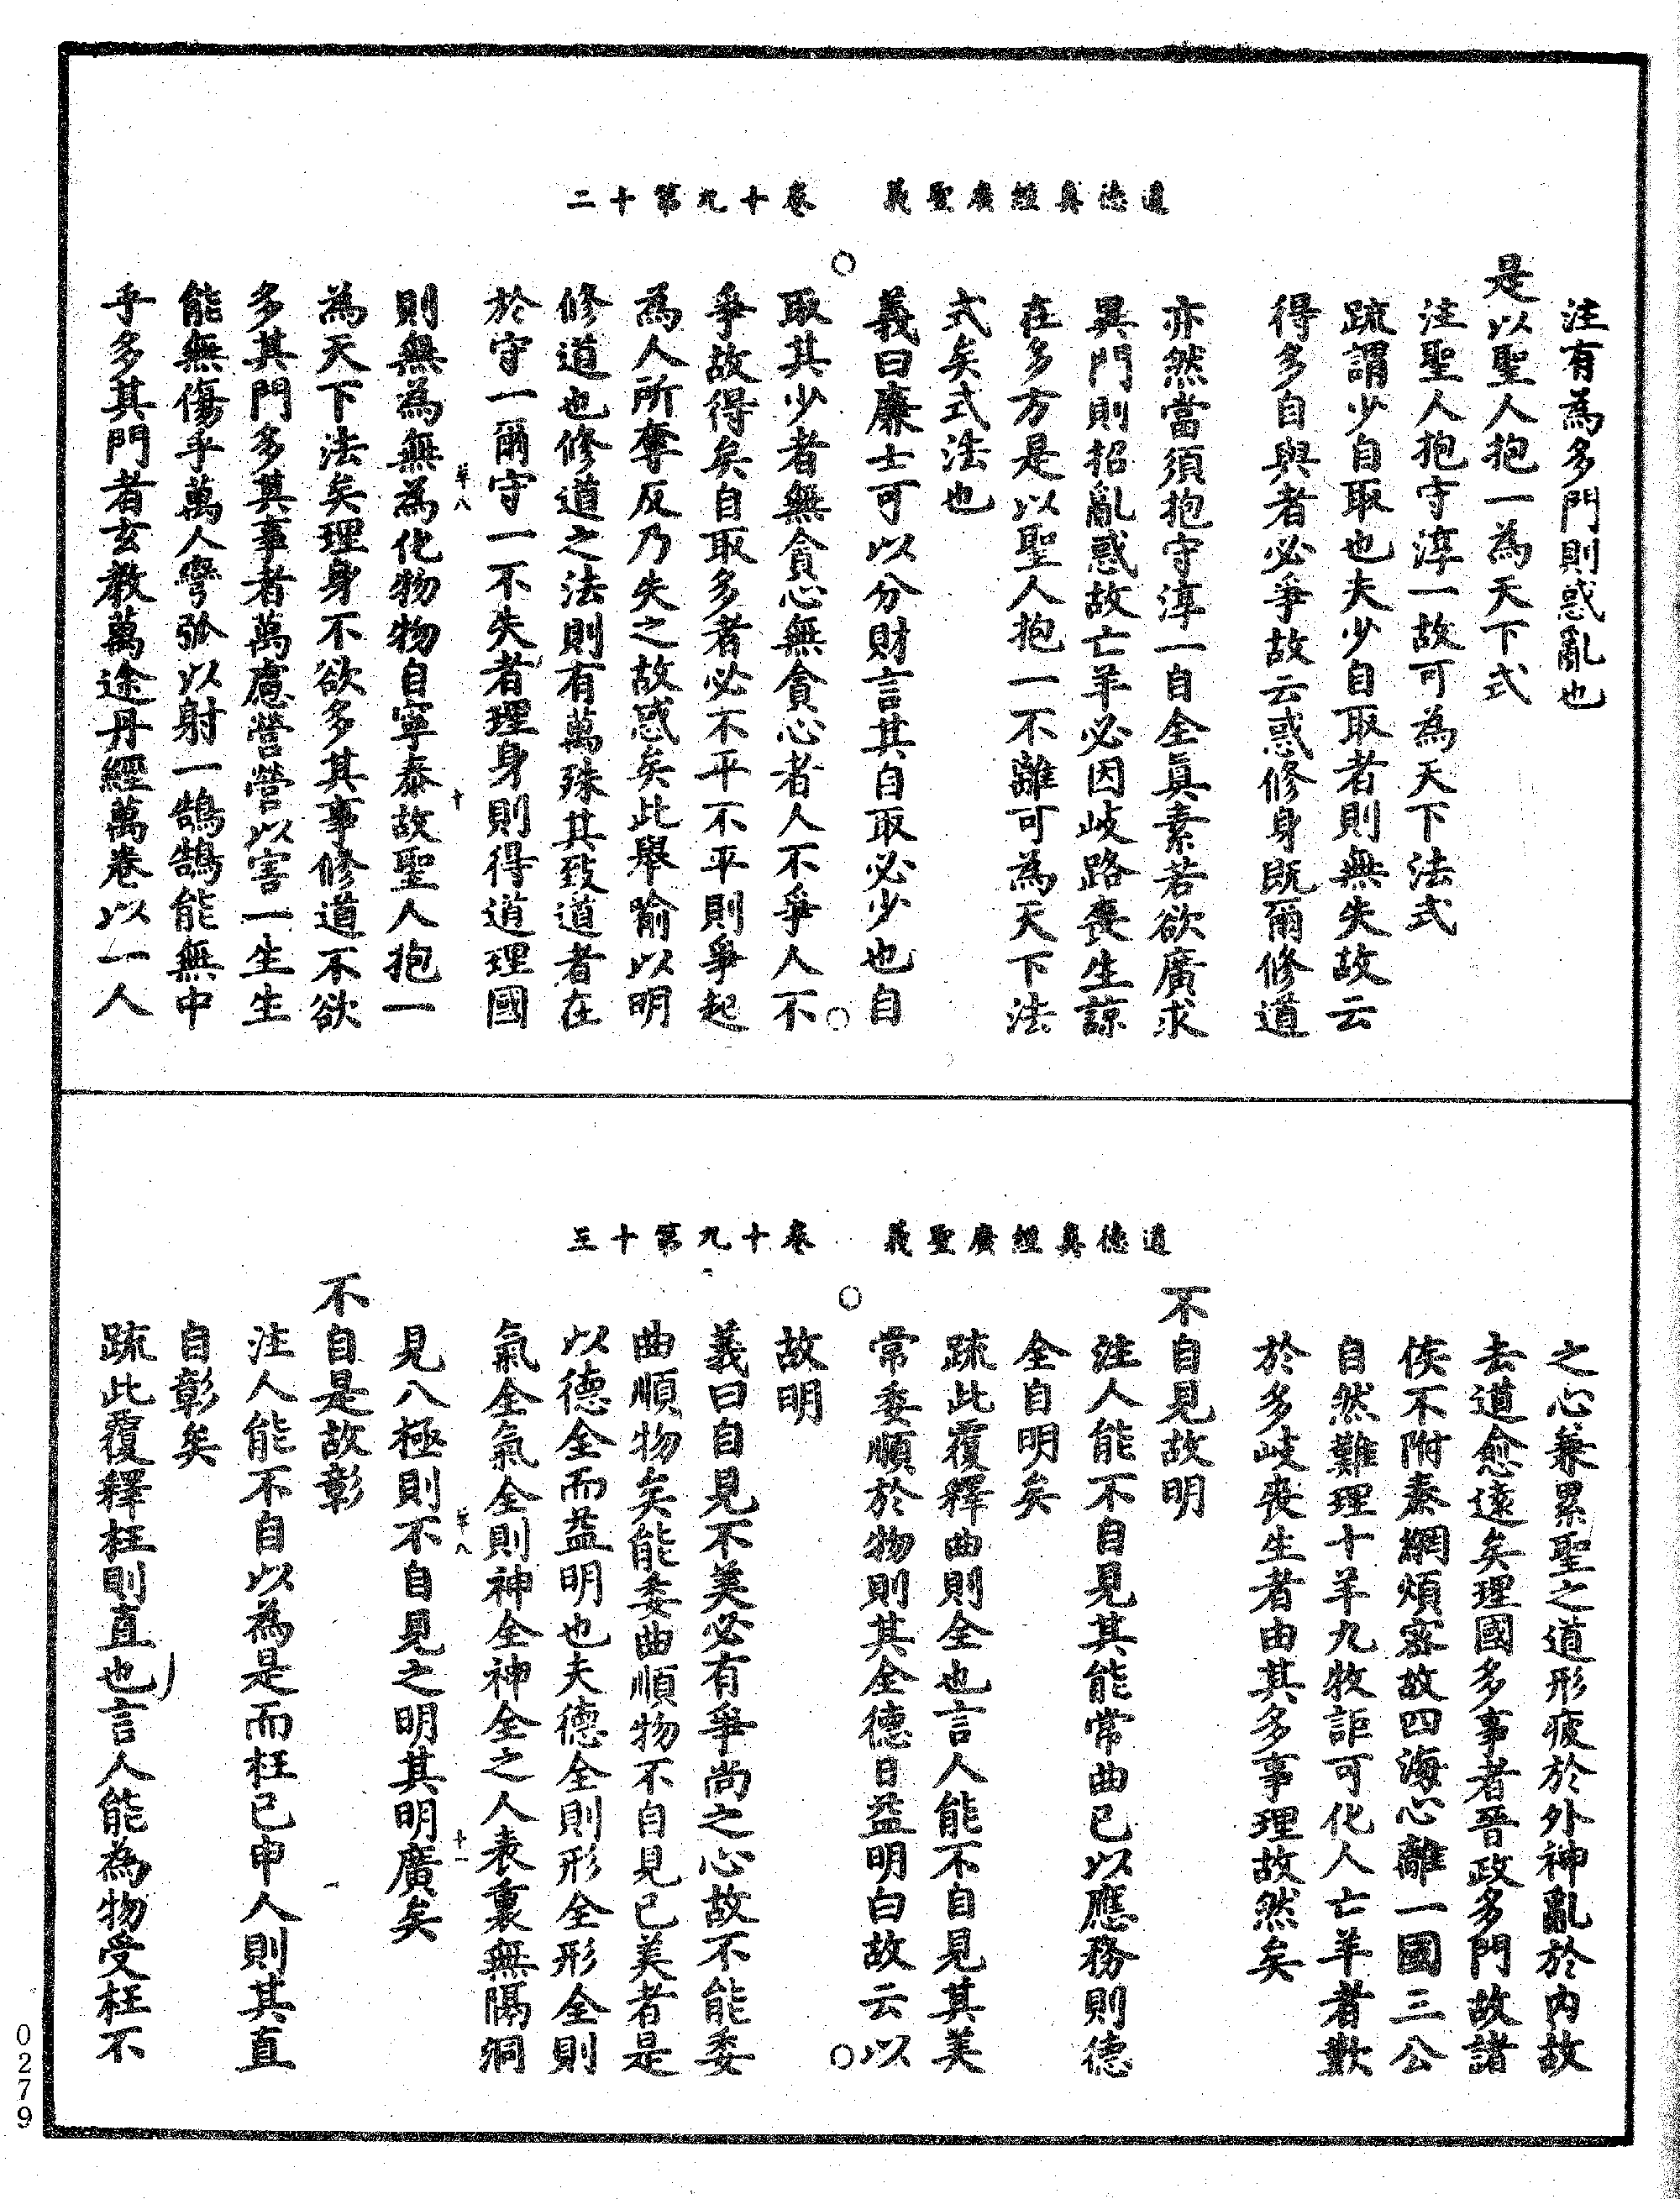 道德真經廣聖義　卷十九第十二
注有為多門則惑亂也
是以聖人抱一為天下式
注聖人抱守淳一故可為天下法式
疏謂少自取也夫少自取者則無失故云
得多自與者必爭故云惑修身既爾修道
亦然當須抱守淳一自全真素若欲廣求
異門則招亂惑故亡羊必因岐路喪生諒
在多方是以聖人抱一不離可為天下法
式矣式法也
義曰廉士可以分財言其自取必少也自
取其少者無貪心無貪心者人不爭人不
爭故得矣自取多者必不平不平則爭起
為人所奪反乃失之故惑矣此舉喻以明
修道也修道之法則有萬殊其致道者在
於守一爾守一不失者理身則得道理國
則無為無為化物物自寧泰故聖人抱一
為天下法矣理身不欲多其事修道不欲
多其門多其事者萬慮營營以害一生生
能無傷乎萬人彎弧以射一鵠鵠能無中
乎多其門者玄教萬途丹經萬卷以一人
道德真經廣聖義　卷十九第十三
之心兼累聖之道形疲於外神亂於內故
去道愈遠矣理國多事者晉政多門故諸
侯不附秦網煩密故四海心離一國三公
自然難理十羊九牧詎可化人亡羊者歎
於多岐喪生者由其多事理故然矣
不自見故明
注人能不自見其能常曲己以應務則德
全自明矣
疏此覆釋曲則全也言人能不自見其美
常委順於物則其全德日益明白故云以
故明
義曰自見不美必有爭尚之心故不能委
曲順物矣能委曲順物不自見己美者是
以德全而益明也夫德全則形全形全則
氣全氣全則神全神全之人表裏無隔洞
見八極則不自見之明其明廣矣
不自是故彰
注人能不自以為是而枉己申人則其直
自彰矣
疏此覆釋枉則直也言人能為物受枉不
0279